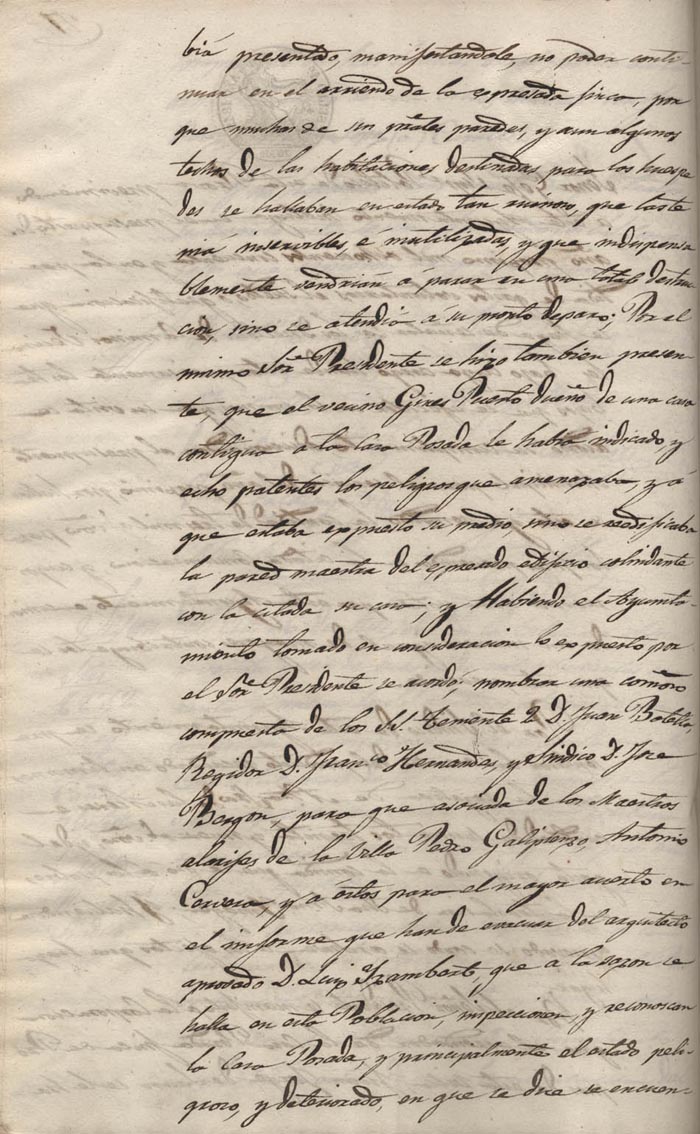 bia presentado, manifestandole, no poder conti-
nuar en el arriendo de la espresada finca, por
que muchas de sus prales paredes, y aun algunos
techos de las habitaciones destinadas para los huespe
des se hallaban en estado tan ruinoso, que las te
nia inservibles, é inutilizadas, y que indispensa
blemente vendrian á parar en una total destru
cion, sino se atendia á su pronto reparo; Por el
mismo Sor. Presidente se hizo tambien presen-
te, que el vecino Gines Puerto dueño de una casa
contigua a la Casa Posada le habia indicado, y
echo patentes los peligros que amenazaba, y á
que estaba expuesto su predio, sino se reedificaba
la pared maestra del expresado edificio colindante
con la citada su casa; y Habiendo el Ayunta-
miento tomado en consideracion lo expuesto por
el Sor. Presidente se acordó, nombrar una comison
compuesta de los SS. teniente 2 D. Juan Botella,
Regidor D. Franco Hernandes, y Sindico D. Jose
para que asociada de los Maestros
alarifes de la Villa Pedro Antonio
Cervera, y á éstos para el mayor acierto en
el informe que han de evacuar del arquitecto
aprobado D. Luis que a la sazon se
halla en esta Poblacion, inspeccionen, y reconoscan
la Casa Posada, y principalmente el estado peli-
groso, y deteriorado, en que se dice se encuen-